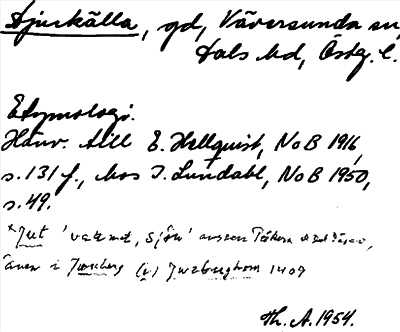 Djurkälla, gd, Väversunda sn,
Dals hd, Östg. l.
Etymologi.
Hänv. till E. Hellquist, NoB 1916,
s. 131 f., hos I. Lundahl, NoB 1950,
s. 49.
'vattnet, sjön' avseen Tåkern
även i 1409
Th. A. 1954.